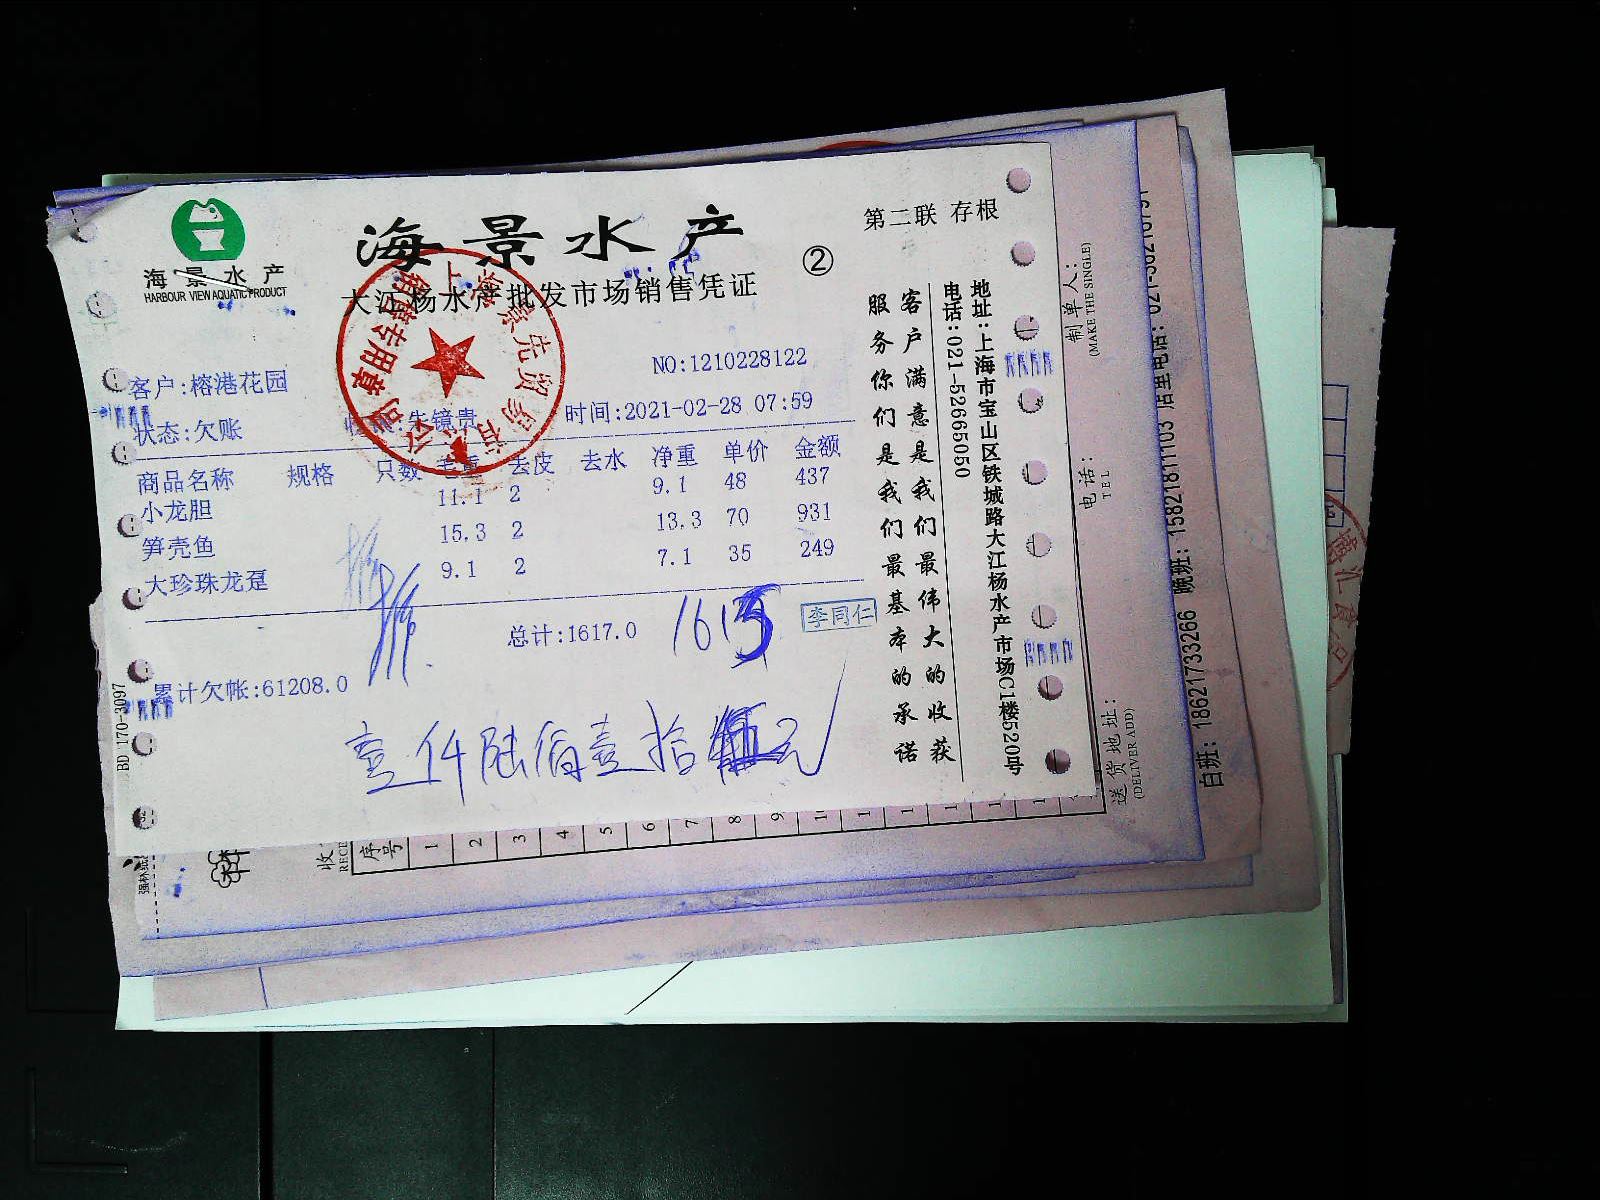 海景水产
HARBOUR VIEW AQUATIC PRODUCT
海景水产
大江杨水产批发市场销售凭证
②
第二联 存根
NO:1210228122
客户:榕港花园
状态:欠账
朱镜贵
时间:2021-02-28 07:59
商品名称 规格 只数 毛重 去皮 去水 净重 单价 金额
小龙胆 11.1 2 9.1 48 437
笋壳鱼 15.3 2 13.3 70 931
大珍珠龙趸 9.1 2 7.1 35 249
总计:1617.0
1615
李同仁
累计欠帐:61208.0
壹仟陆佰壹拾伍元
客户满意是我们最伟大的收获
服务你们是我们最基本的承诺
地址:上海市宝山区铁城路大江杨水产市场C1楼520号
电话:021-52665050
BD 170-3097
制单人:
(MAKE THE SINGLE)
电话:
TEL
送货地址:
(DELIVER ADD)
白班: 18621733266 晚班: 15821811103 店里电话:
收
RECE
序号
1
2
3
4
5
6
7
8
9
销售专用章